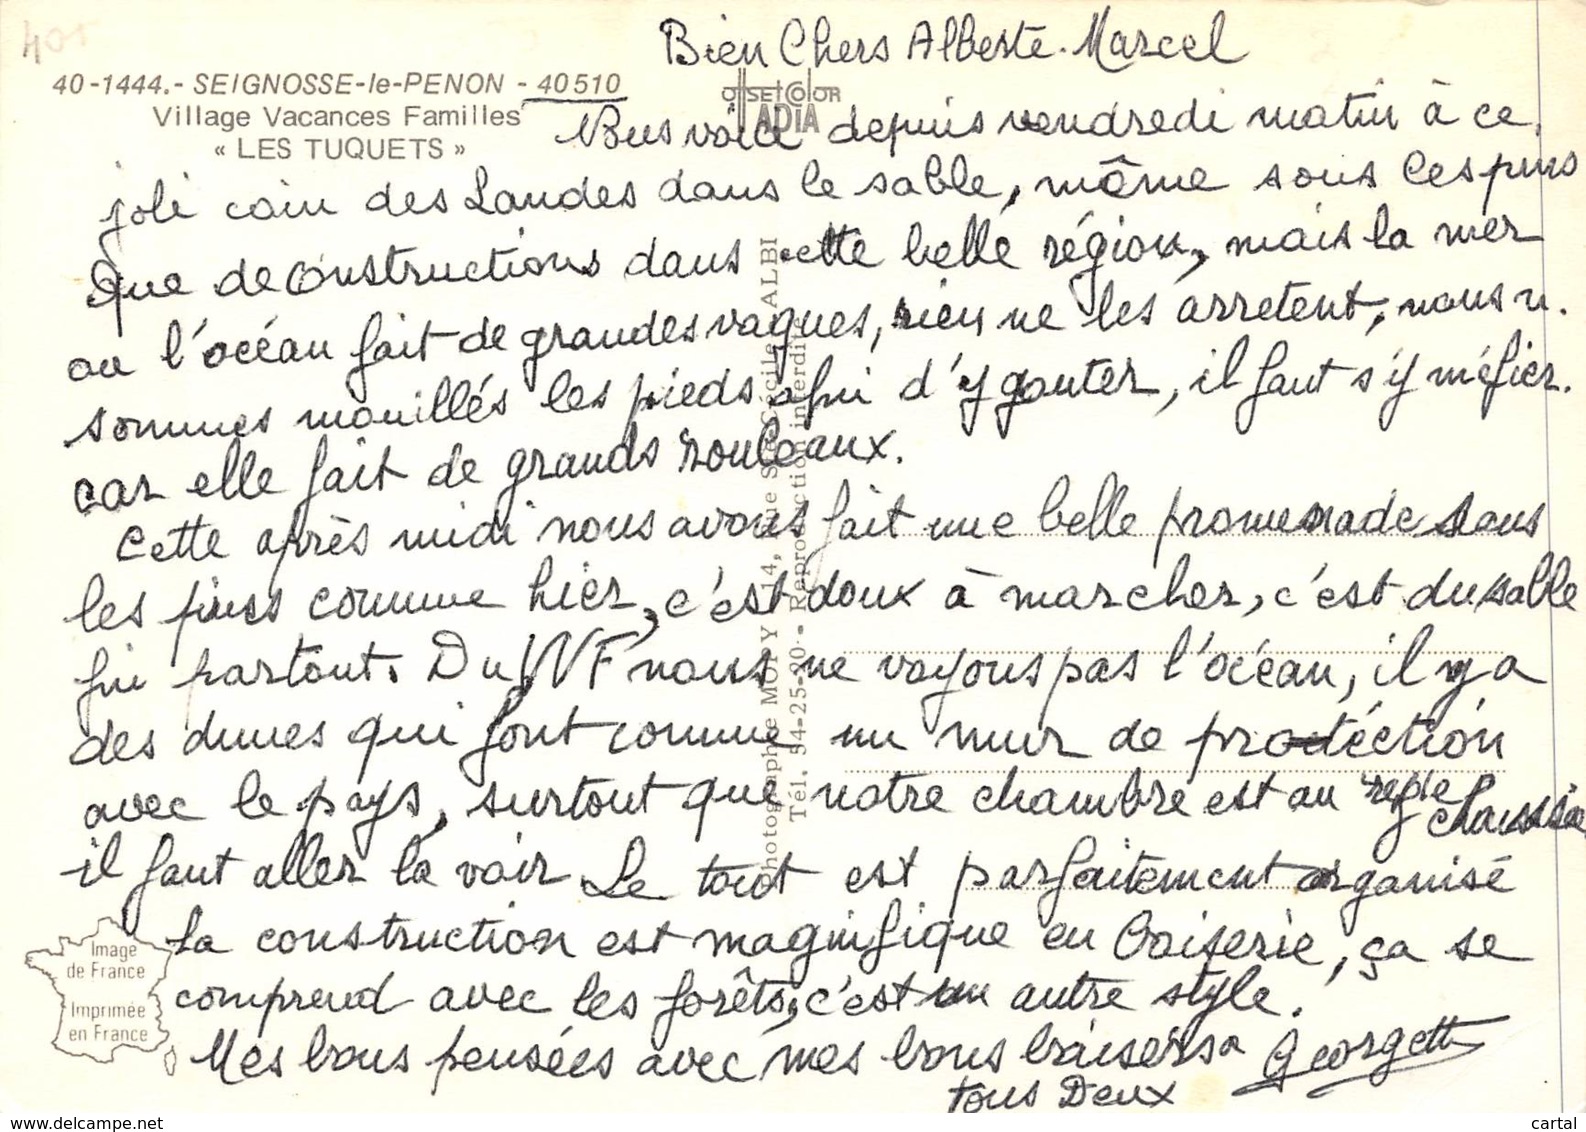 401
Bien Chers Alberte. Marcel
40-1444.- SEIGNOSSE-le-PENON - 40510
Village Vacances Familles
« LES TUQUETS »
offset color
ADIA
Nous voici depuis vendredi matin à ce
joli coin des Landes dans le sable, même sous les pins
Que de constructions dans cette belle région, mais la mer
ou l'océan fait de grandes vagues, rien ne les arretent, nous n.
sommes mouillés les pieds afin d'y gouter, il faut s'y méfier.
car elle fait de grands rouleaux.
Cette après midi nous avons fait une belle promenade dans
les pins comme hier, c'est doux à marcher, c'est du sable
fin partout. Du VVF nous ne voyons pas l'océan, il y a
des dunes qui font comme un mur de protéction
avec le pays, surtout que notre chambre est au rez de
chaussée
il faut aller la voir Le tout est parfaitement organisé
La construction est magnifique en Boiserie, ça se
comprend avec les forêts, c'est un autre style.
Mes bons pensées avec mes bons baisers a Georgette
tous Deux
Photographe MOPY - 14, Rue Ste-Cécile - ALBI
Tél. 54-25-90 - Reproduction interdite
Image
de France
Imprimée
en France
My-store on delcampe.net
cartal